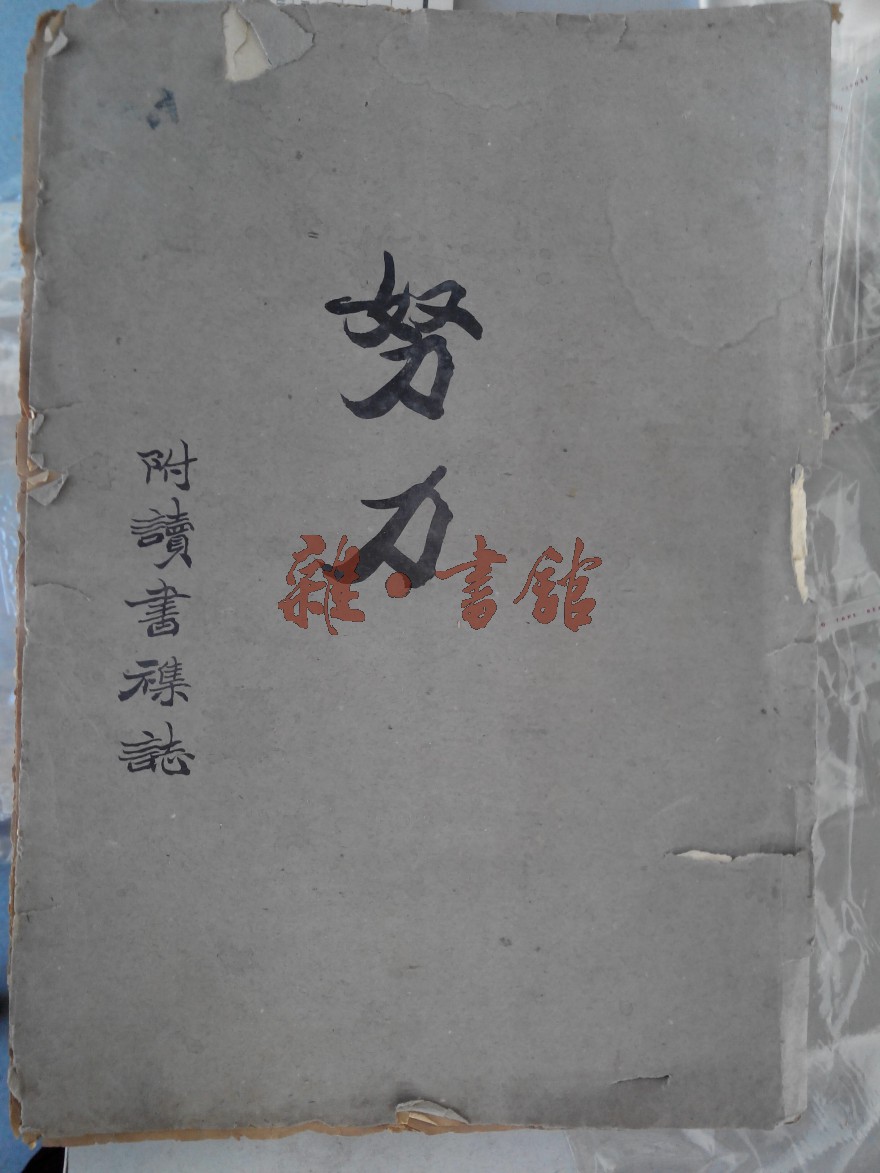 努力
附讀書襍誌
雜·書館